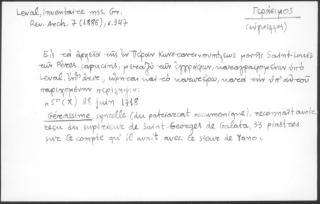 Leval, Inventaire mss. Gr.
Rev. Arch. 7 (1886), σ.347
Γεράσιμος
(σύγκελλος)
Εἰς τὰ ἀρχεῖα τῆς ἐν Πέραν Κωνσταντινουπόλεως μονῆς Saint-Louis
τῶν Pères capucins, μεταξὺ τῶν ἐγγράφων, καταγραφομένων ὑπὸ
Leval, καὶ τὸ κατωτέρω, κατὰ τὴν ὑπ' αὐτοῦ
παρεχομένην περίληψιν:
n 5ον (X) 28 juin 1718
Gérassime, syncelle (du patriarcat œcuménique), reconnaît avoir
reçu du supérieur de Saint-Georges de Galata, 33 piastres
sur le compte qu'il avait avec le sieur de Fano.